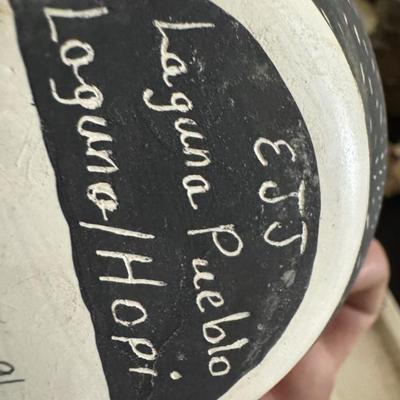 EJJ
Laguna Pueblo
Laguna/Hopi